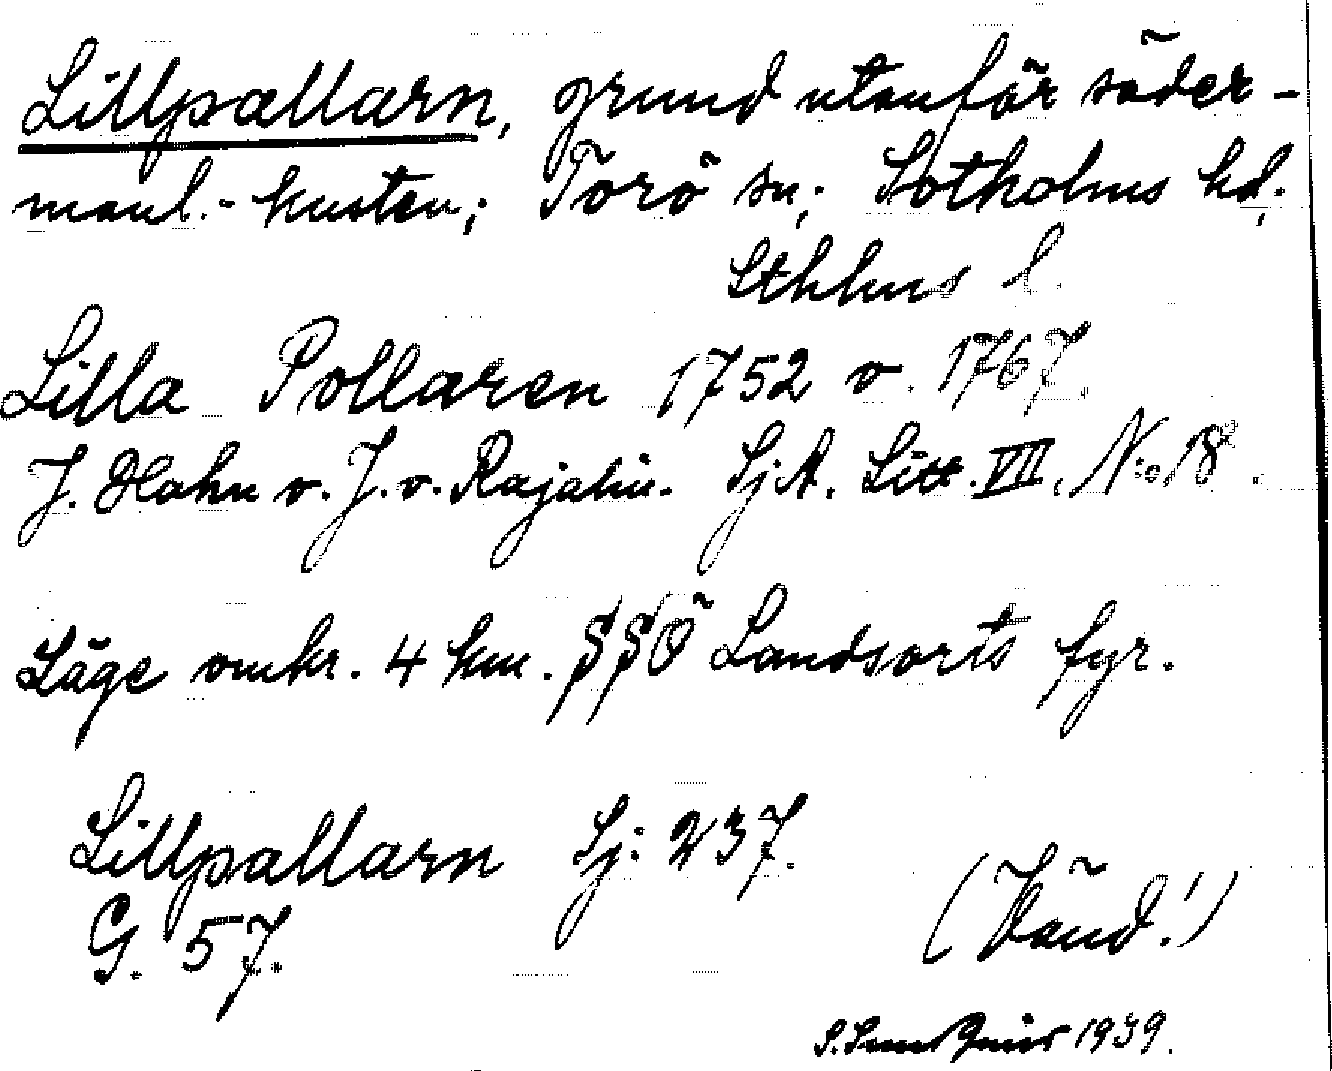 Lillpallarn, grund utanför söder-
manl.-kusten; Torö sn; Sotholms hd;
Sthlms l.
Lilla Pollaren 1752 o. 1767.
J. Hahn o. J. v. Rajalin. SjA. Litt. VII, No. 18.
Läge omkr. 4 km. SSO Landsorts fyr.
Lillpallarn Sj: 237.
G. 57.
(Vänd!)
1939.